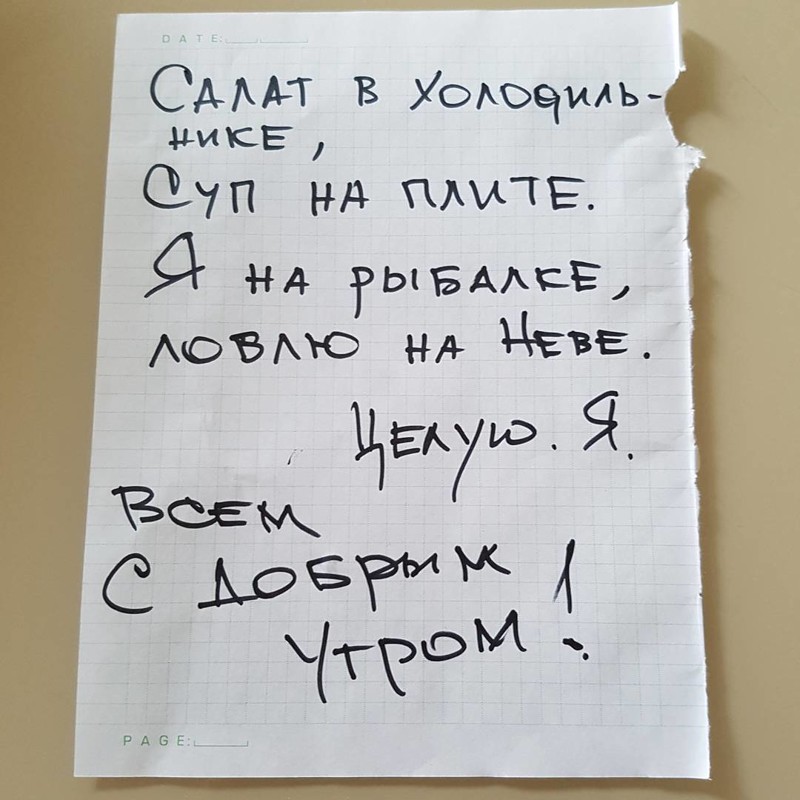 DATE:
Салат в холодиль-
нике,
Суп на плите.
Я на рыбалке,
ловлю на Неве.
Целую. Я.
Всем
с добрым
утром!
PAGE: